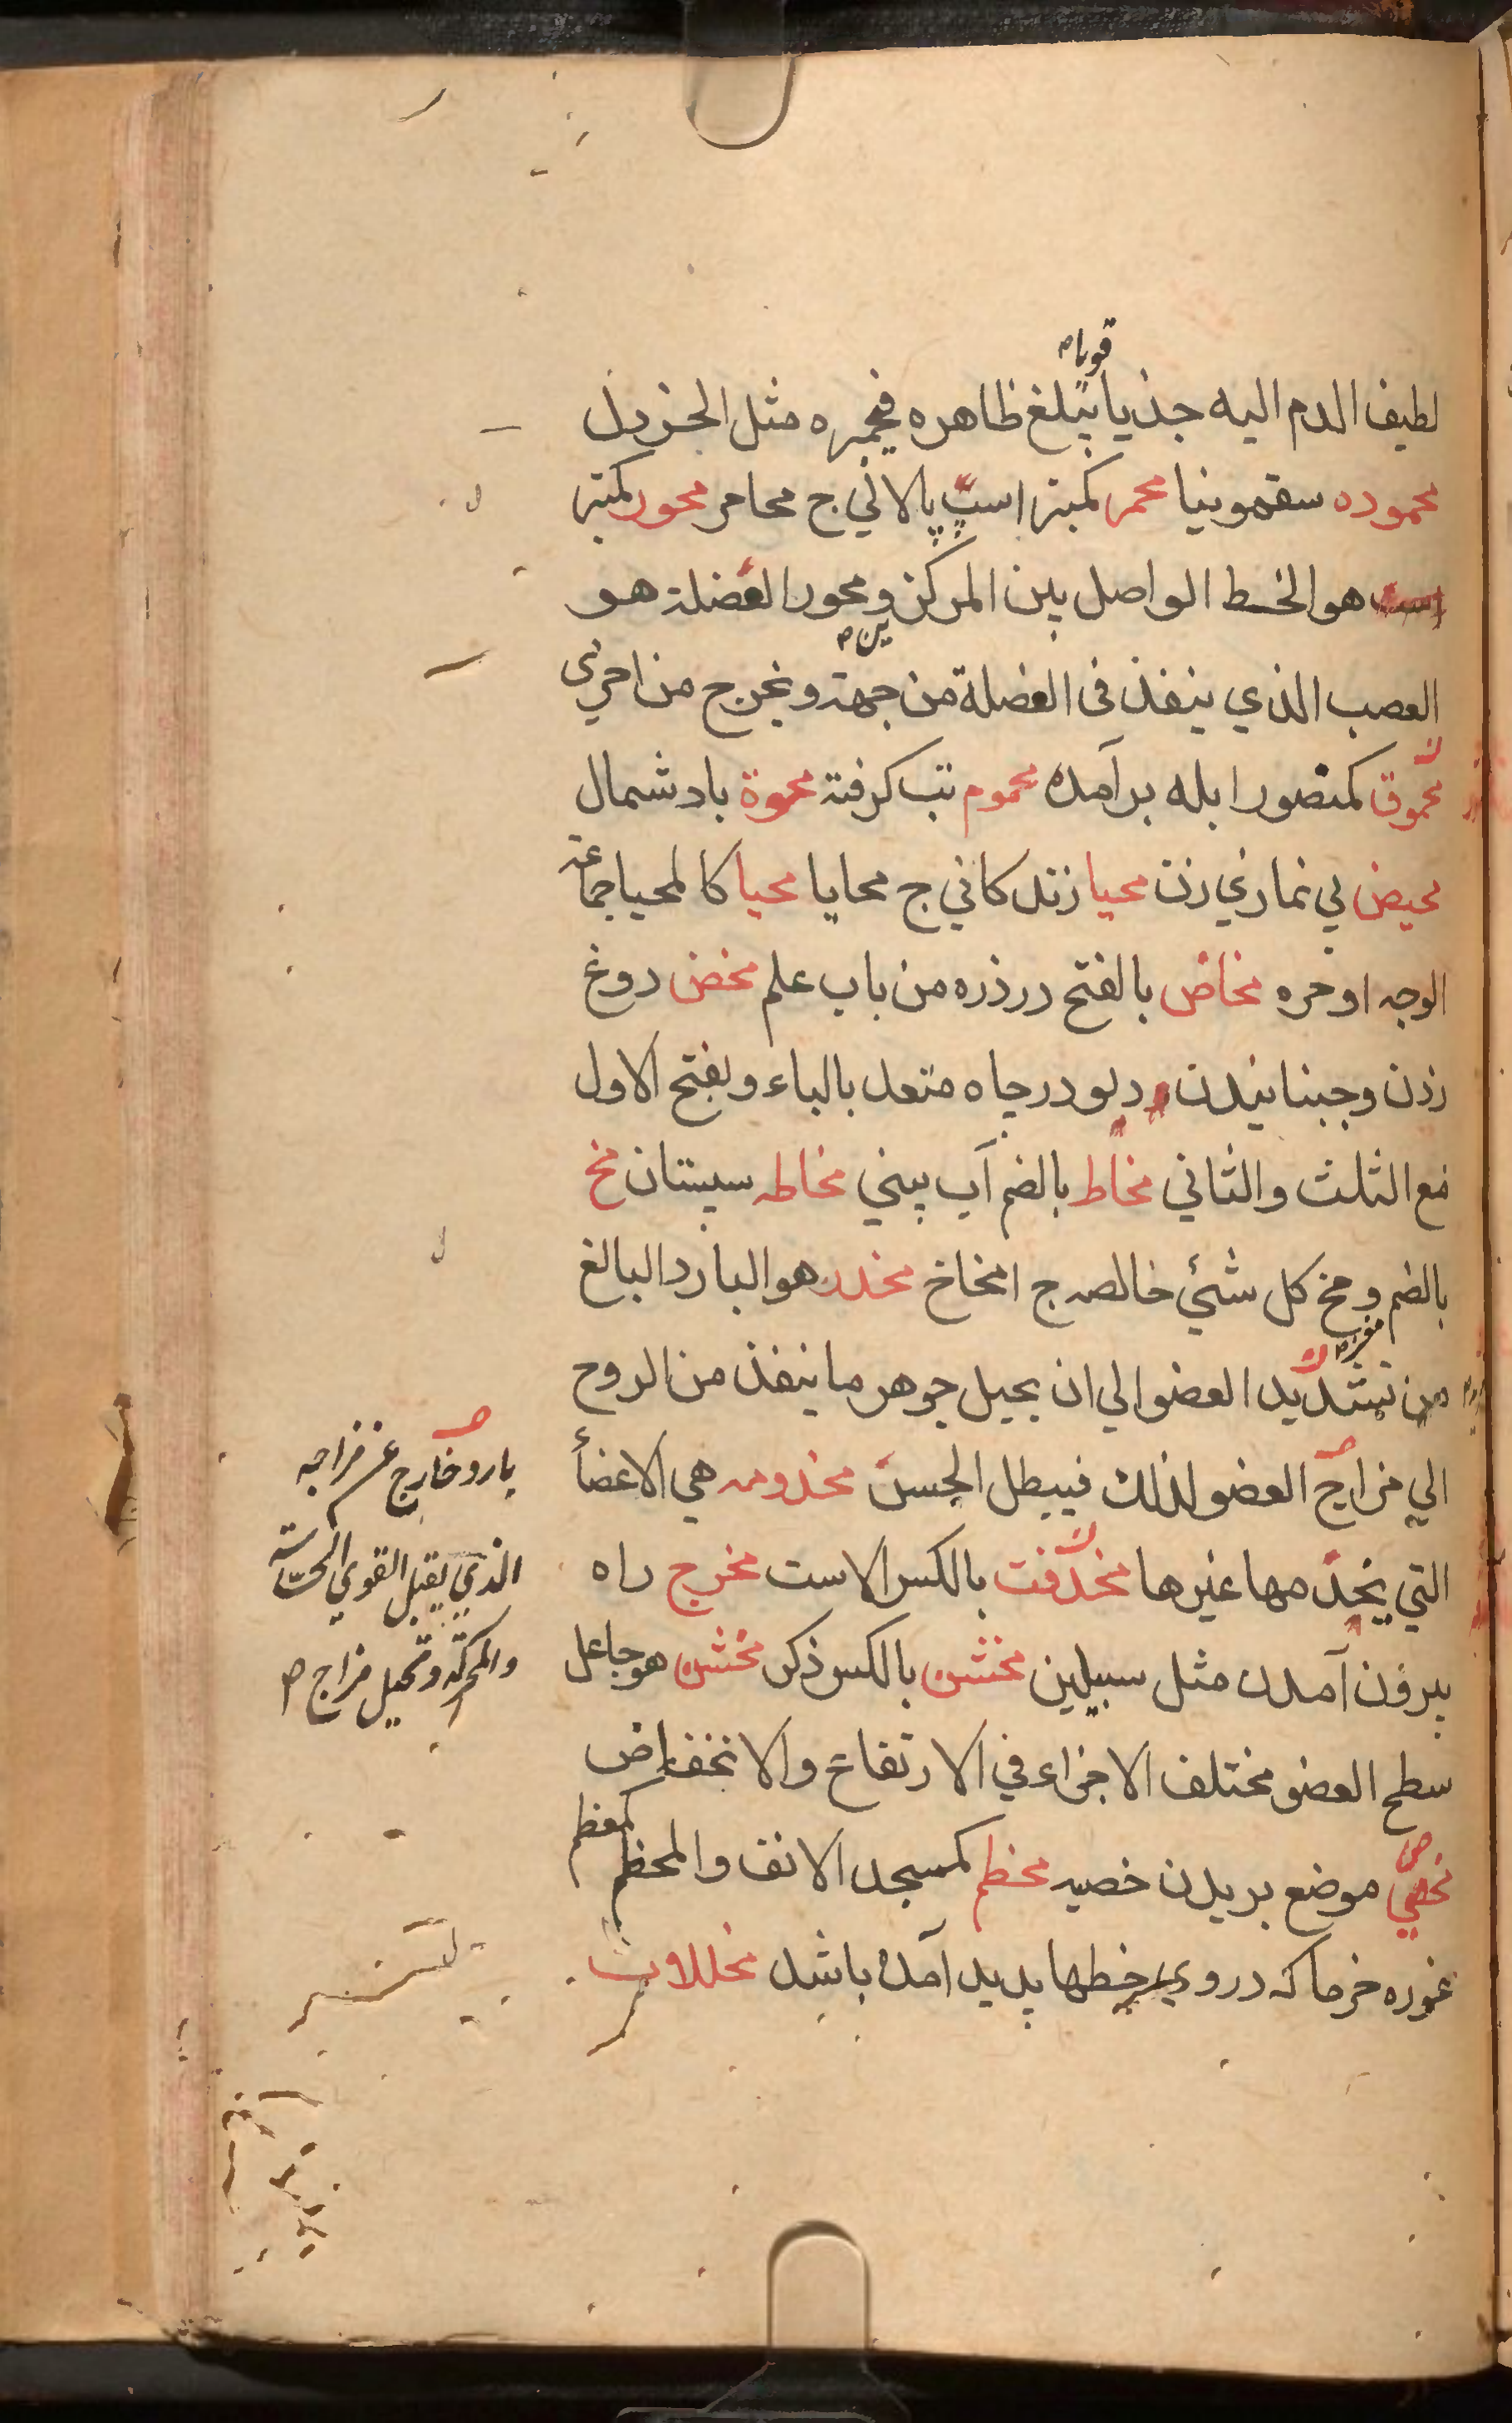 قويا
لطيف الدم اليه جذبا يبلغ ظاهره فيحمره مثل الخردل
محموده سقمونيا محمر كمنبر اسب پالاني ج محامر محور كمنبر
است هو الخط الواصل بين المركز و محور العضلة هو
العصب الذي ينفذ في العضلة من جهة و يخرج من اخرى
محموق كمنصور ابله برآمده محموم تب كرفته محوة باد شمال
محيض بي نمازي زن محيا زندكاني ج محايا محيا كالمحيا جماعة
الوجه او حره مخاض بالفتح درد زه من باب علم مخض دوغ
زدن و جنبانيدن دلو در چاه متعد بالباء و بفتح الاول
مع الثلث والثاني مخاط بالضم آب بيني مخاطه سپستان مخ
بالضم و مخ كل شئي خالصه ج امخاخ مخدر هو البارد البالغ
من تبريد العضو الي ان يحيل جوهر ما ينفذ من الروح
الي مزاج العضو لذلك فيبطل الحس مخدومه هي الاعضأ
التي يخدمها غيرها مخدفت بالكسر الاست مخرج راه
بيرون آمدن مثل سبيلين مخشن بالكسر ذكر مخشن هو جاعل
سطح العضو مختلف الاجزاء في الارتفاع والانخفاض
مخصي موضع بريدن خصيه مخطم كمسجد الانف والمخطم كمعظم
غوره خرما كه در وي خطها پديد آمده باشد مخللات
بارد خارج عن مزاجه
الذي يقبل القوي الحساسة
والمحركة و تحيل مزاج